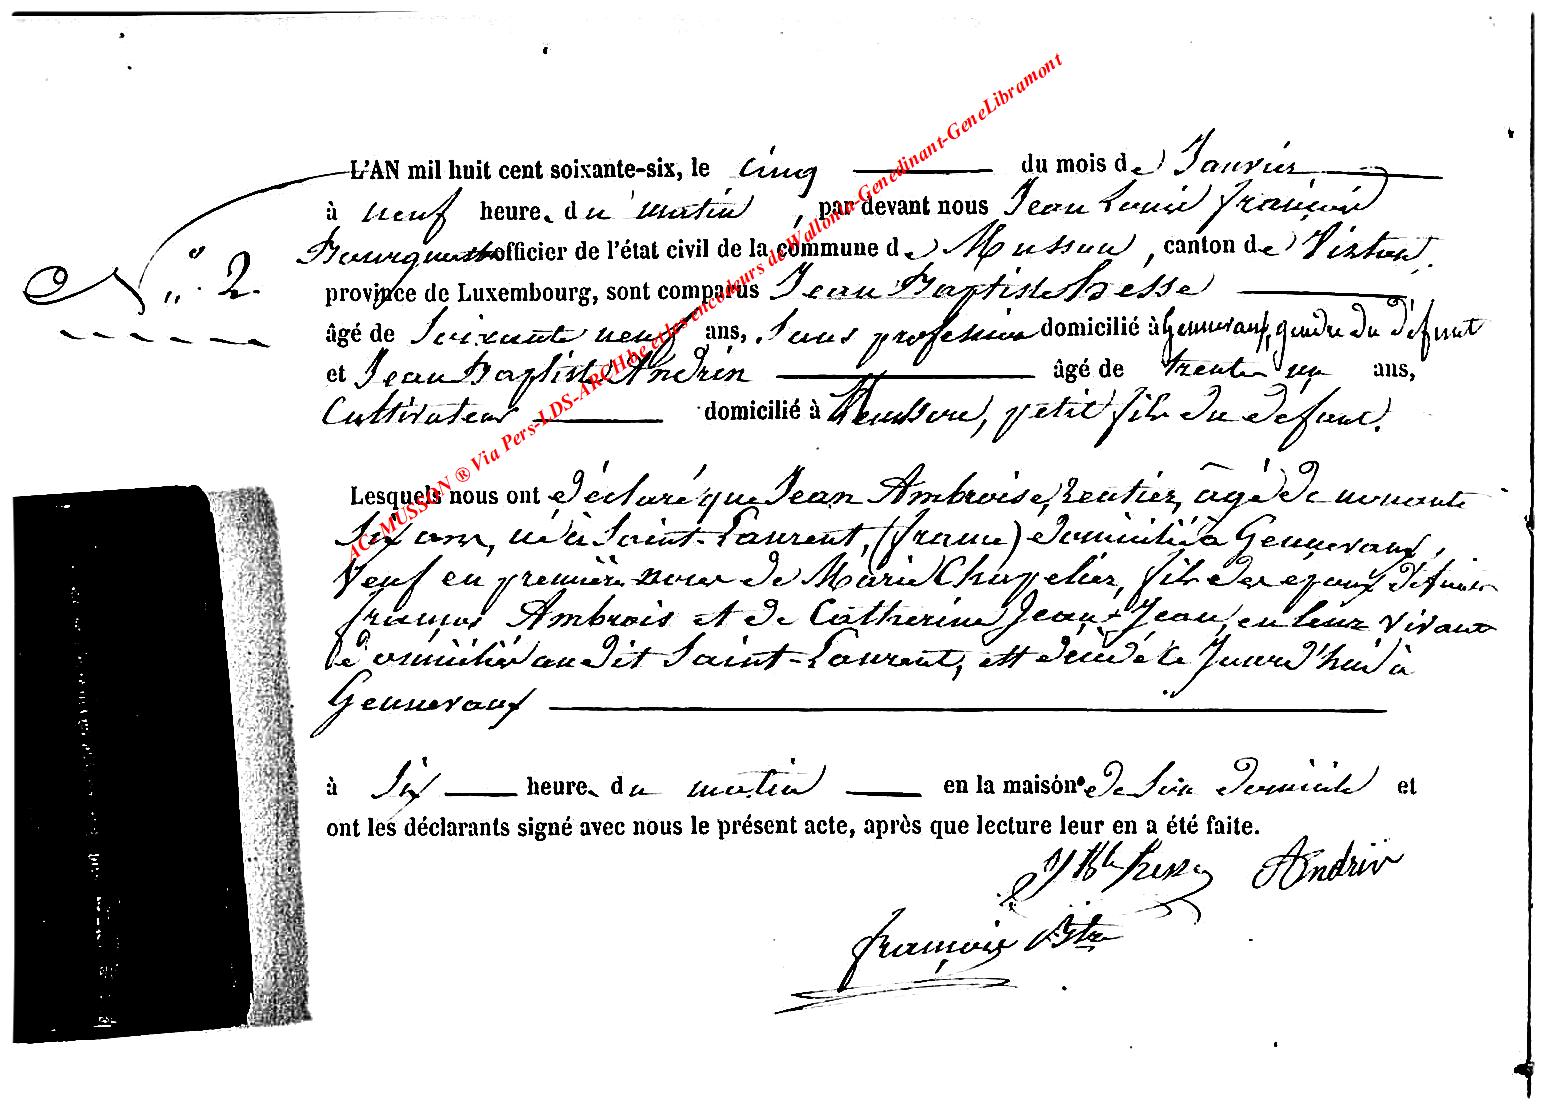 L'AN mil huit cent soixante-six, le cinq du mois de Janvier
à neuf heures du matin, par devant nous Jean Louis françois
N° 2. officier de l'état civil de la commune de Musson, canton de Virton,
province de Luxembourg, sont comparus Jean Baptiste Hesse
âgé de Soixante neuf ans, Sans profession domicilié à Gennevaux, gendre du défunt
et Jean Baptiste Andrin âgé de trente un ans,
Cultivateur domicilié à petit fils du défunt.
Lesquels nous ont déclaré que Jean Ambroise, Rentier, âgé de nonante
Six ans, né à Saint-Laurent, (france) domicilié à Gennevaux,
Veuf en première noces de Marie Chapelier, fils des époux défunts
françois Ambrois et de Catherine Jean-Jean, en leur vivant
domiciliés au dit Saint-Laurent, est décédé le Jourd'hui à
Gennevaux
à Six heures du matin en la maison de Son domicile et
ont les déclarants signé avec nous le présent acte, après que lecture leur en a été faite.
JBte Hesse Andrin
françois
AC-MUSSON ® Via Pers-LDS-ARCHbe et les encodeurs de Wallonia-Genedinant-GeneLibramont